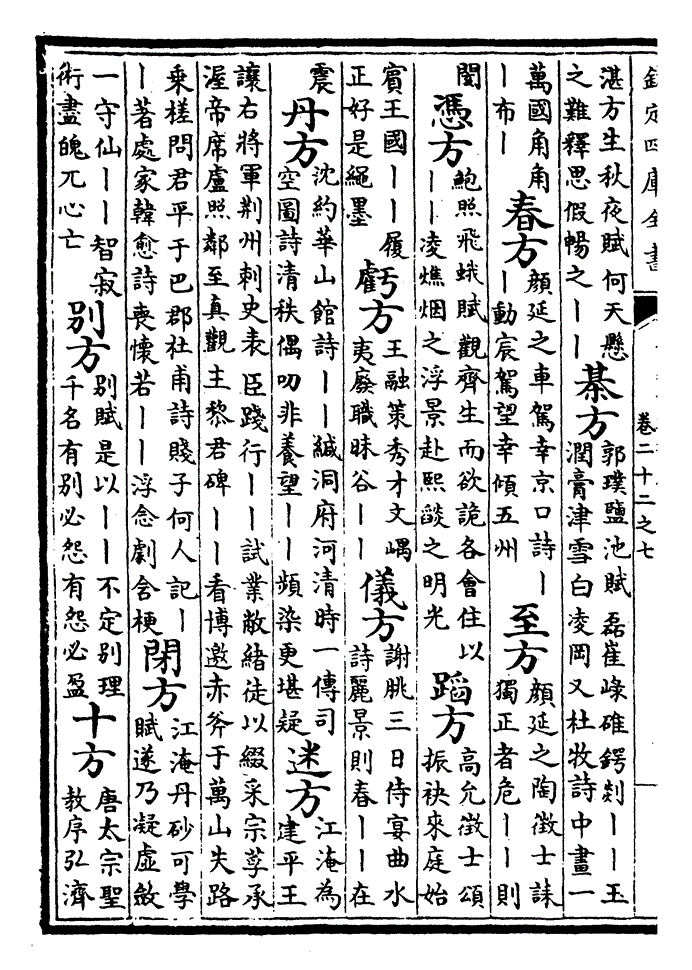 欽定四庫全書
卷二十二之七
湛方生秋夜賦何天懸
之難釋思假暢之丨丨
綦方
郭璞鹽池賦磊崔㟳碓鍔剡丨丨玉
潤膏津雪白凌岡又杜牧詩中畫一
萬國角角
丨布丨
春方
顔延之車駕幸京口詩丨
丨動宸駕望幸傾五州
至方
顔延之陶徵士誄
獨正者危丨丨則
閡
憑方
鮑照飛蛾賦觀齊生而欲詭各會住以
丨丨凌燋烟之浮景赴熙燄之明光
蹈方
高允徵士頌
振袂來庭始
賓王國丨丨履
正好是繩墨
虧方
王融策秀才文嵎
夷廢職昧谷丨丨
儀方
謝朓三日侍宴曲水
詩麗景則春丨丨在
震
丹方
沈約華山館詩丨丨緘洞府河清時一傳司
空圖詩清秩偶叨非養望丨丨頻染更堪疑
迷方
江淹為
建平王
讓右將軍荆州刺史表臣踐行丨丨試業敞緒徒以綴采宗孳承
渥帝席盧照鄰至真觀主黎君碑丨丨看博邀赤斧于萬山失路
乘槎問君平于巴郡杜甫詩賤子何人記丨
丨著處家韓愈詩喪懷若丨丨浮念劇含梗
閉方
江淹丹砂可學
賦遂乃凝虛斂
一守仙丨丨智寂
術盡魄兀心亡
别方
别賦是以丨丨不定别理
千名有别必怨有怨必盈
十方
唐太宗聖
教序弘濟